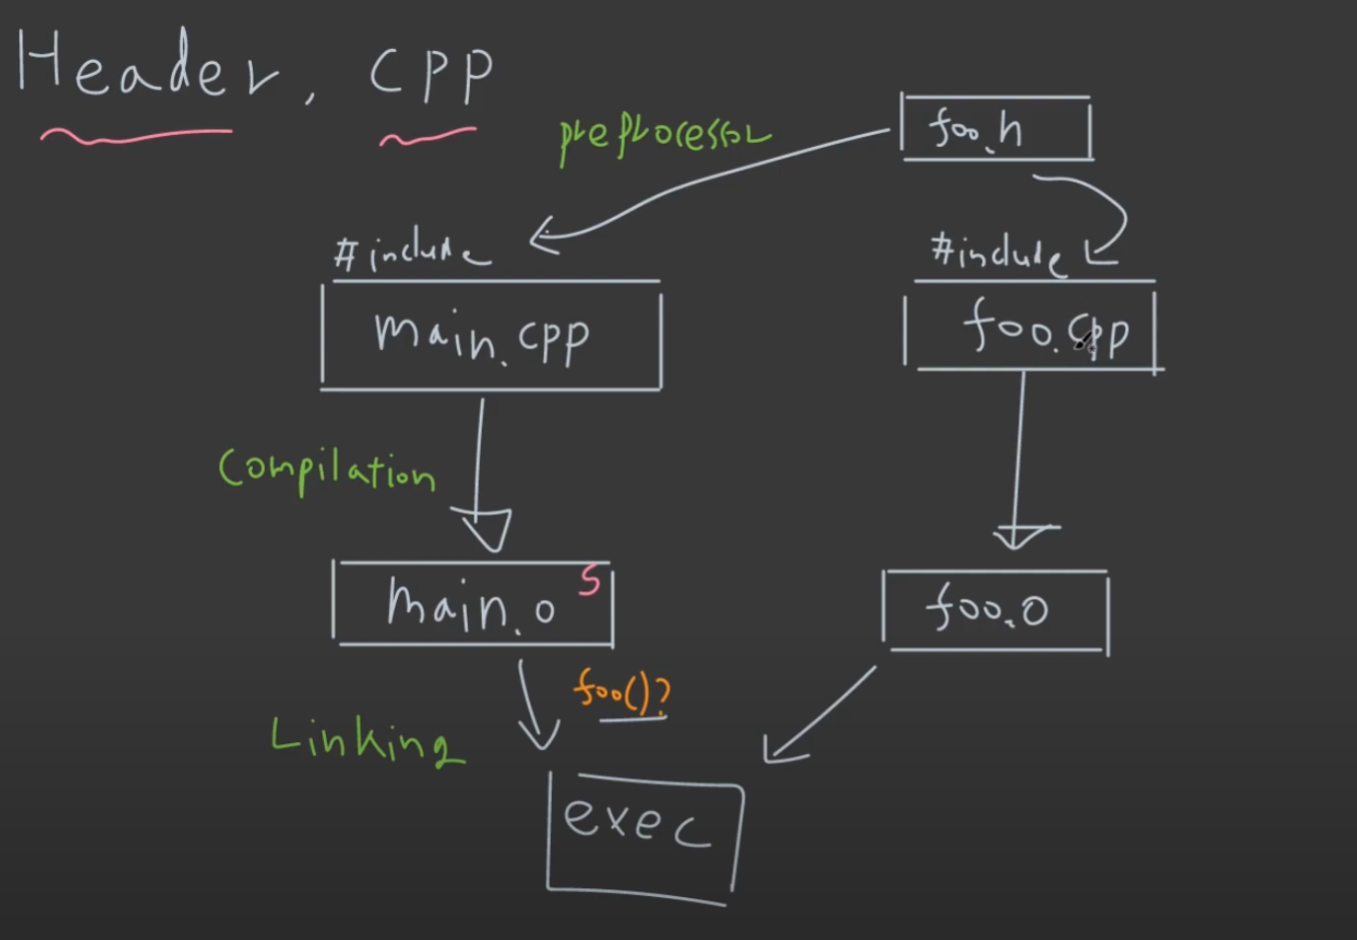 Header, cpp
preprocessor
foo.h
#include
#include
main.cpp
foo.cpp
Compilation
main.o
5
foo.o
foo()?
Linking
exec